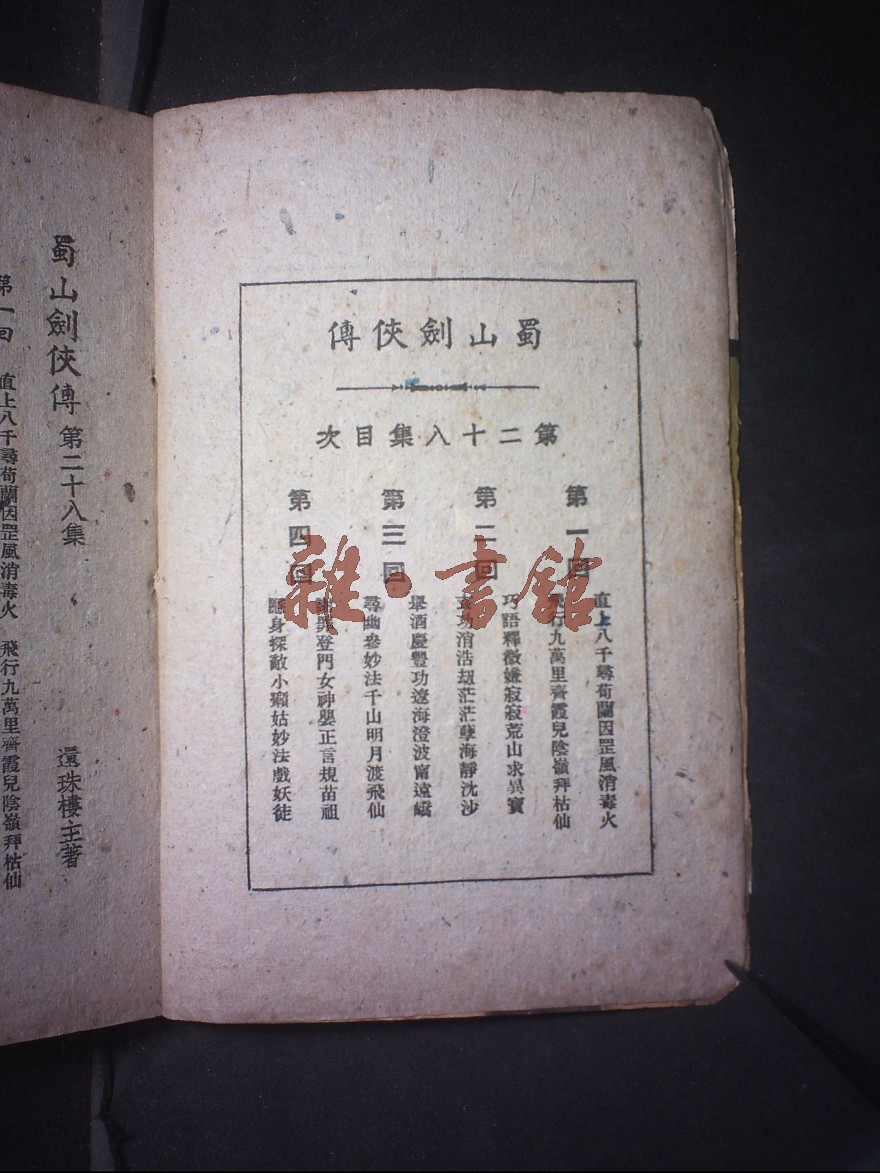 蜀山劍俠傳
第二十八集目次
第一回
直上八千尋荀蘭因罡風消毒火
飛行九萬里齊霞兒陰嶺拜枯仙
第二回
巧語釋微嫌寂寂荒山求異寶
玄功消浩劫茫茫孽海靜沈沙
第三回
舉酒慶豐功遼海澄波甯遠嶠
尋幽參妙法千山明月渡飛仙
第四回
登門女神嬰正言規苗祖
身探敵小癩姑妙法戲妖徒
蜀山劍俠傳 第二十八集
還珠樓主著
第一回 直上八千尋荀蘭因罡風消毒火 飛行九萬里齊霞兒陰嶺拜枯仙
雜·書館